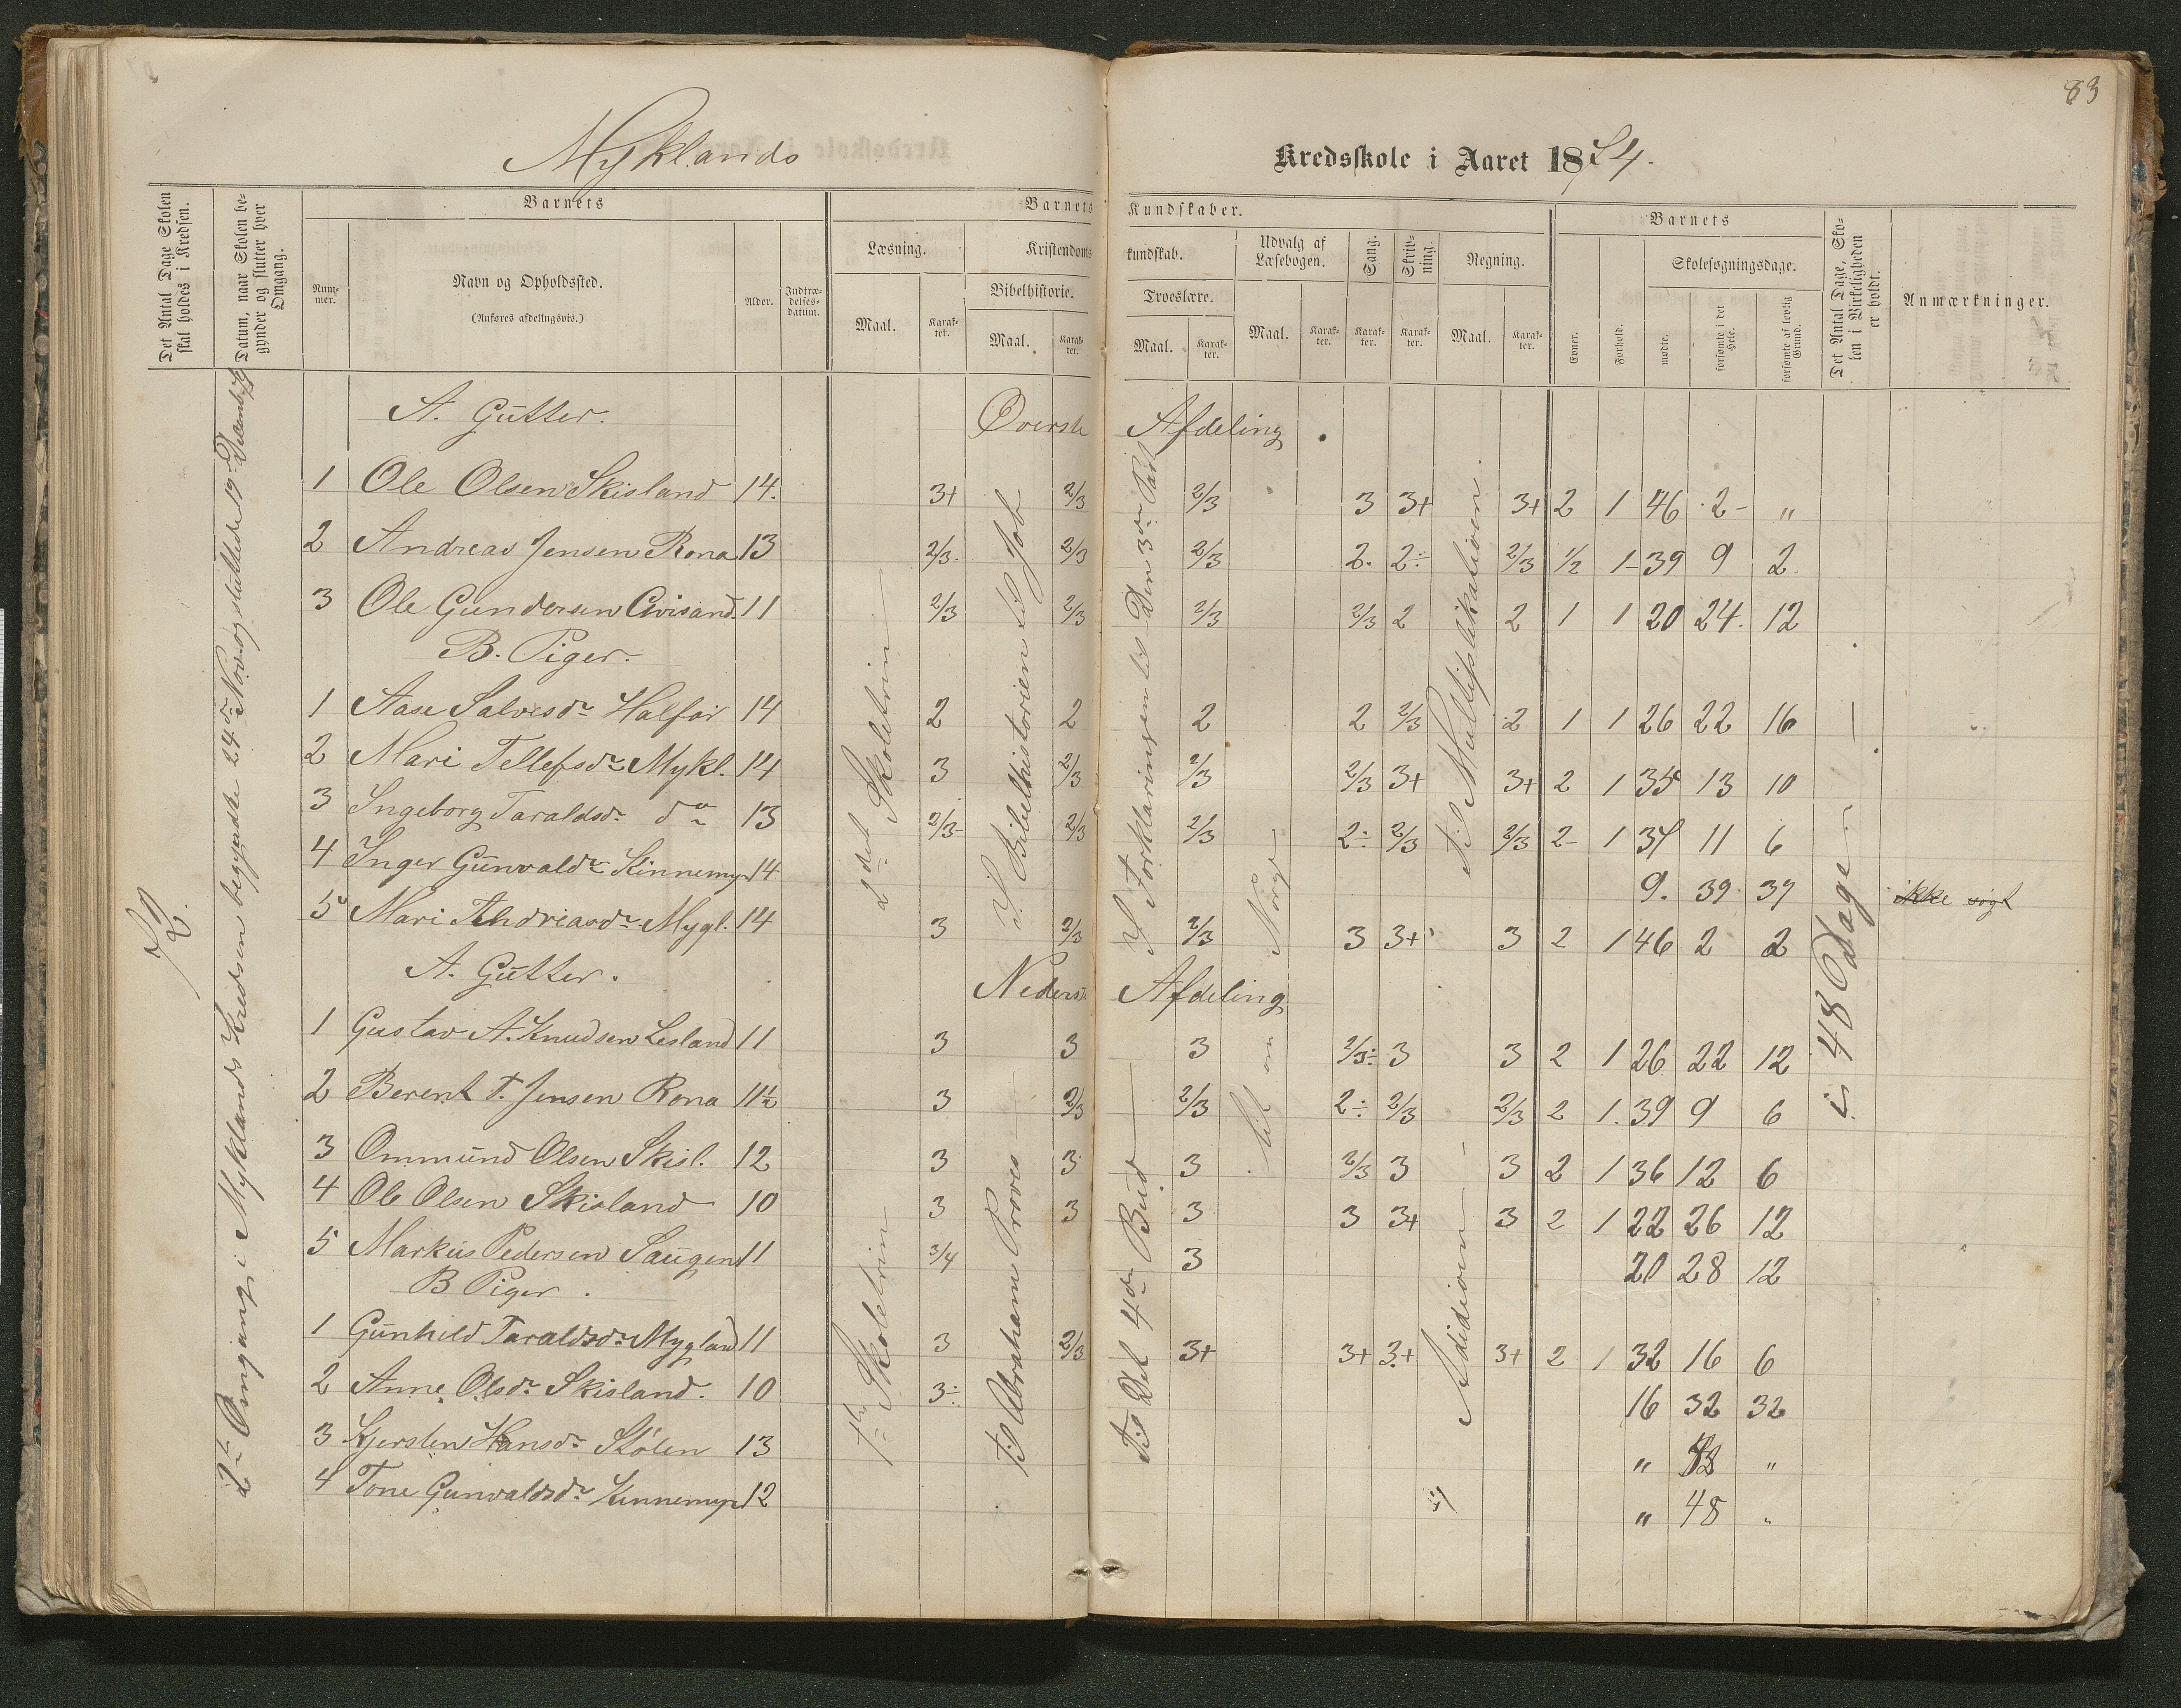 83
Myklands
Kredsskole i Aaret 1874.
Det Antal Dage Skolen skal holdes i Kredsen.
Datum, naar Skolen begynder og slutter hver Omgang.
Barnets
Nummer.
Navn og Opholdssted.
(Anføres afdelingsvis.)
Alder.
Indtrædelsesdatum.
Barnets Kundskaber.
Læsning.
Maal.
Karakter.
Kristendomskundskab.
Bibelhistorie.
Maal.
Karakter.
Troeslære.
Maal.
Karakter.
Udvalg af Læsebogen.
Maal.
Karakter.
Sang.
Karakter.
Skrivning.
Karakter.
Regning.
Maal.
Karakter.
Barnets
Evner.
Forhold.
Skolesøgningsdage.
mødte.
forsømte i det Hele.
forsømte af lovlig Grund.
Det Antal Dage, Skolen i Virkeligheden er holdt.
Anmærkninger.
72.
2den Omgang i Myklands Kredsen begyndte 24de Nov og sluttede 19de Decemb
A. Gutter. Øverste Afdeling.
1 Ole Olsen Skisland 14. 3+ 2/3 2/3 3 3+ 3+ 2 1 46 2 "
2 Andreas Jensen Rona 13 2/3 2/3 2/3 2. 2÷ 2/3 1/2 1 39 9 2.
3 Ole Gundersen 11 2/3 2/3 2/3 2/3 2 2 1 1 20 24. 12
B. Piger.
1 Aase Salvesdr Halfar 14 2 2 2 2 2/3 2 1 1 26 22 16
2 Mari Tellefsdr Mykl. 14 3 2/3 2/3 2/3 3+ 3+ 2 1 35 13 10
3 Ingeborg Taraldsdr do 13 2/3 2/3 2/3 2÷ 2/3 2/3 2 1 37 11 6
4 Inger Gunvaldr Kinnemyr 14 9. 39 39 ikke søgt
5 Mari Andreasdr Mygl. 14 3 2/3 2/3 3 3+ 3 2 1 46 2 2
2det Skoletrin
I Bibelhistorien til Job
I Forklaringen til Den 3die Part
til Multiplikationen
A. Gutter. Nederste Afdeling
1 Gustav A. Knudsen Lesland 11 3 3 3 2/3÷ 3 3 2 1 26 22 12
2 Berent T. Jensen Rona 11 1/2 3 2/3 2/3 2÷ 2/3 2/3 2 1 39 9 6
3 Ommund Olsen Skisl. 12 3 3 3 2/3 3 3 2 1 36 12 6
4 Ole Olsen Skisland 10 3 3 3 3 3+ 3 2 1 22 26 12
5 Markus Pedersen Haugen 11 3/4 3 20 28 12
B Piger.
1 Gunhild Taraldsdr Mygland 11 3 2/3 3+ 3+ 3+ 3+ 2 1 32 16 6
2 Anne Olsdr Skisland. 10 3÷ 16 32 32
3 Kjersten Hansdr Stølen 13 " 48 "
4 Tone Gunvaldsdr Kinnemyr 12 " 48 "
1ste Skoletrin
til Abrahams Prøves
til Det 4de Bud
til om Norge
Adidionen
i 48 Dage